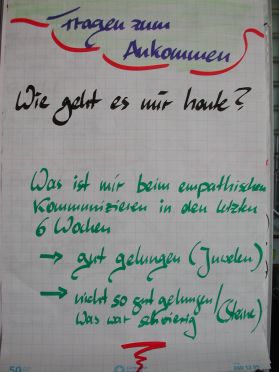 Fragen zum
Ankommen
Wie geht es mir heute?
Was ist mir beim empathischen
Kommunizieren in den letzten
6 Wochen
→ gut gelungen (Juwelen)
→ nicht so gut gelungen/
Was war schwierig (Steine)
50